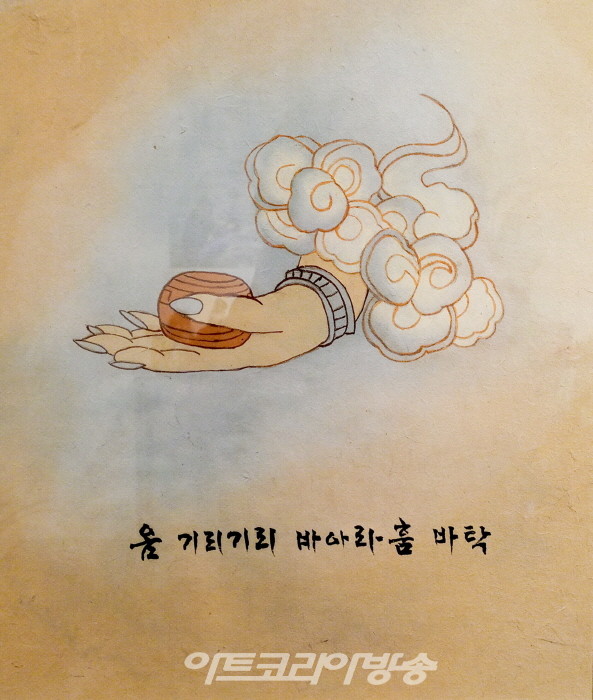 옴 기리기리 바아라 훔 바탁
아트코리아방송